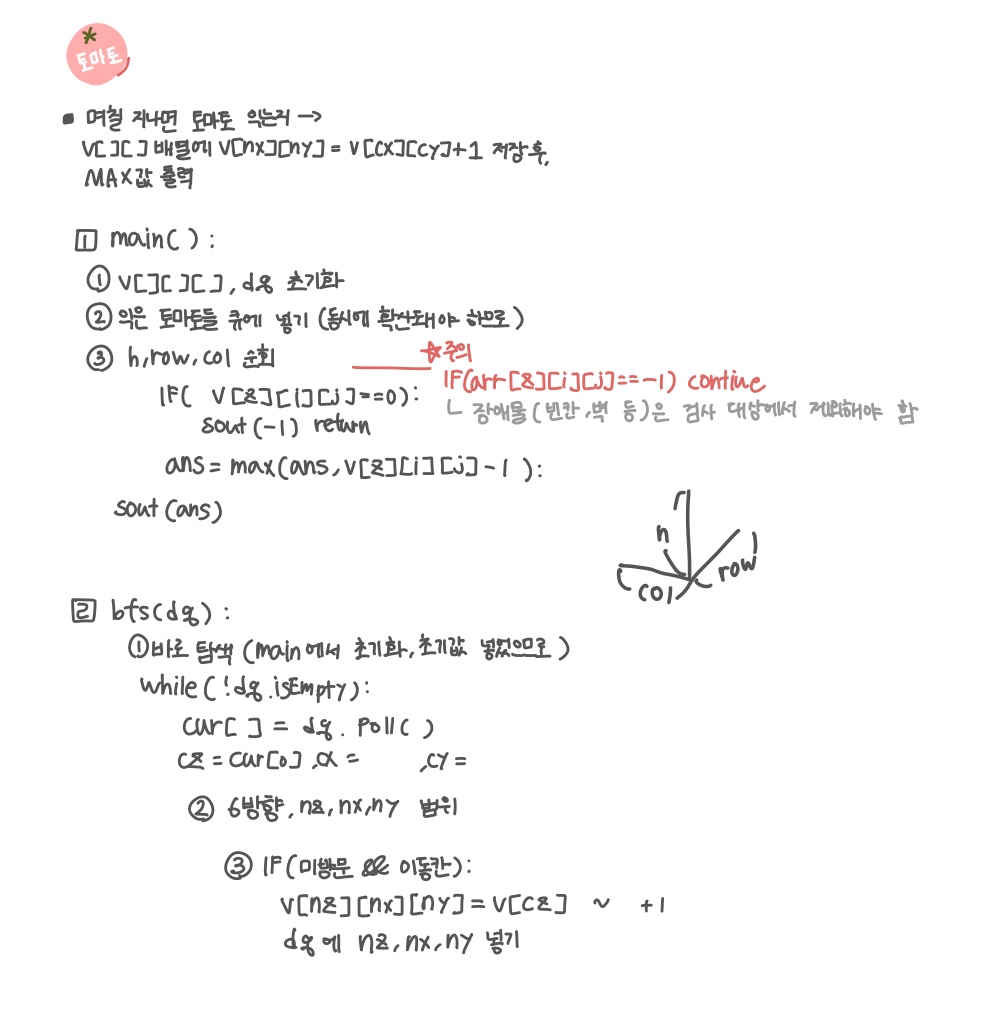 토마토
▪ 며칠 지나면 토마토 익는지 →
V[ ][ ] 배열에 V[nx][ny] = V[cx][cy]+1 저장 후,
MAX값 출력
1 main( ) :
① V[ ][ ][ ], dq 초기화
② 익은 토마토들 큐에 넣기 (동시에 확산돼야 하므로)
③ h, row, col 순회
☆주의
IF(arr[z][i][j]==-1) contine
IF( V[z][i][j]==0):
ㄴ 장애물(빈칸,벽 등)은 검사 대상에서 제외해야 함
sout (-1) return
ans = max(ans, V[z][i][j]-1 ):
sout (ans)
h
row
col
2 bfs(dq) :
①바로 탐색 (main에서 초기화, 초기값 넣었으므로)
while( !dq.isEmpty):
cur[ ] = dq. Poll( )
cz = cur[0] ,cx = ,cy =
② 6방향, nz, nx, ny 범위
③ IF(미방문 && 이동칸):
V[nz][nx][ny] = V[cz] ~ +1
dq에 nz, nx, ny 넣기